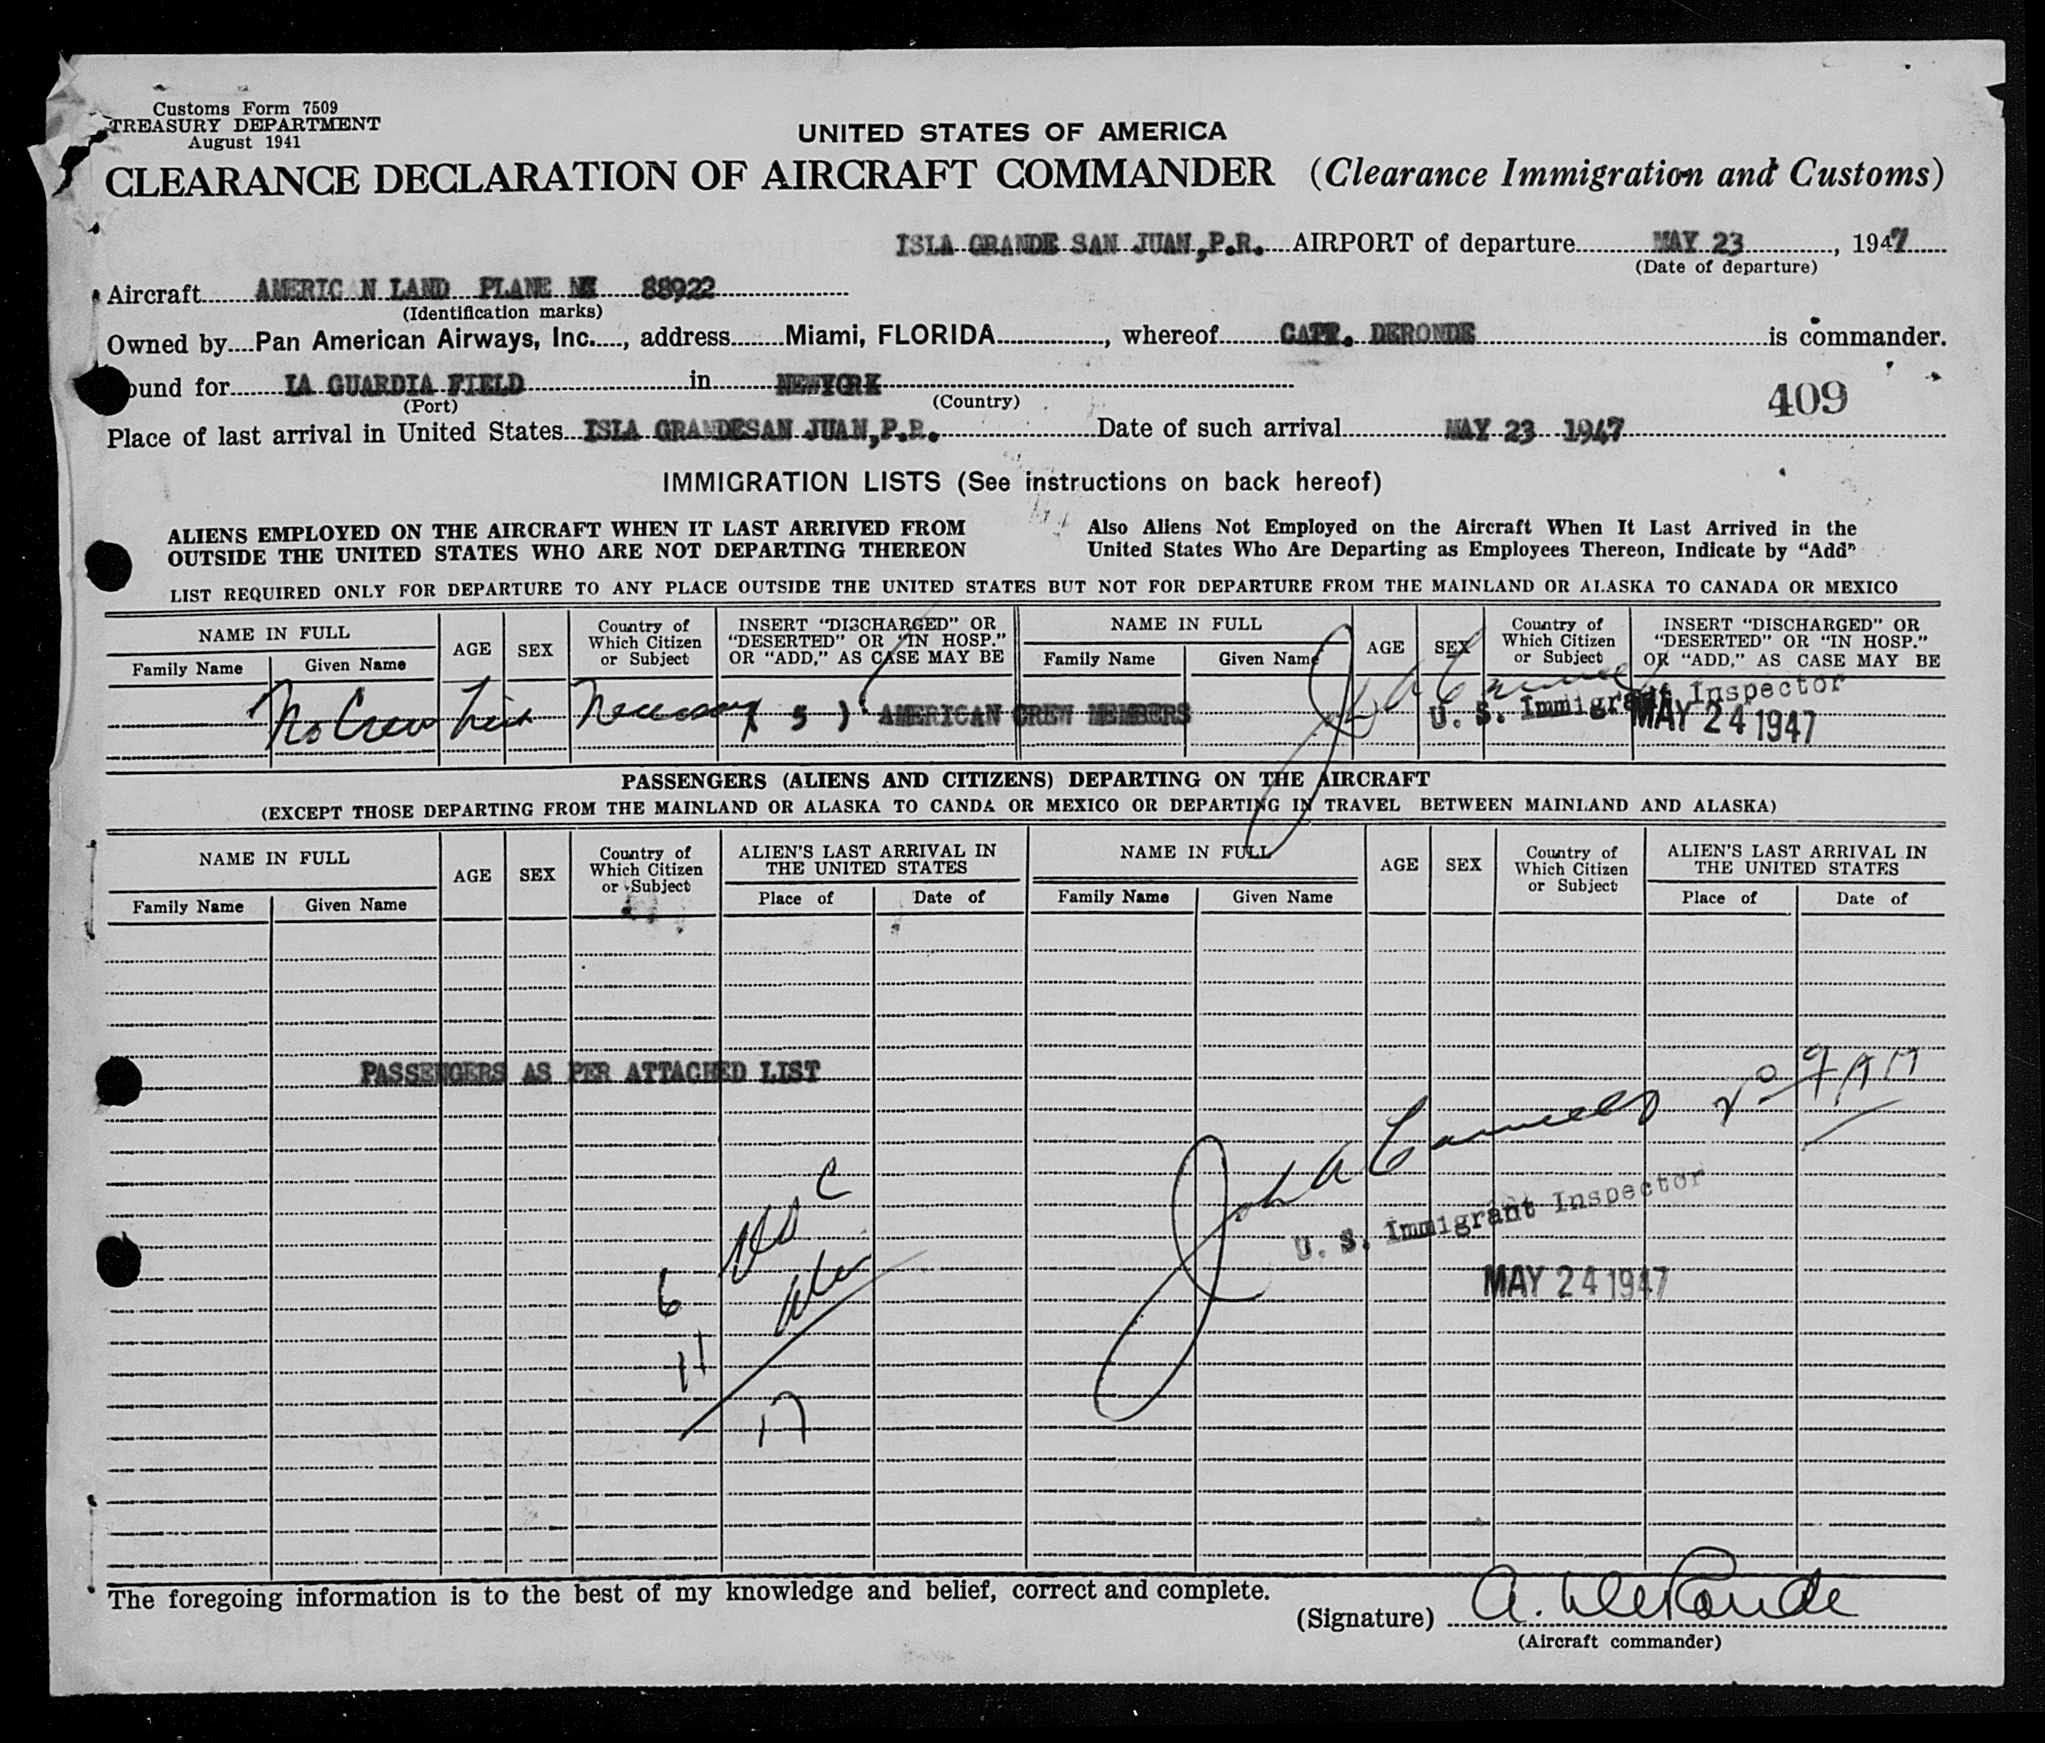 Customs Form 7509
TREASURY DEPARTMENT
August 1941
UNITED STATES OF AMERICA
CLEARANCE DECLARATION OF AIRCRAFT COMMANDER (Clearance Immigration and Customs)
ISLA GRANDE SAN JUAN, P.R. AIRPORT of departure MAY 23, 1947
(Date of departure)
Aircraft AMERICAN LAND PLANE 88922
(Identification marks)
Owned by Pan American Airways, Inc., address Miami, FLORIDA, whereof CAPT. DERONDE is commander.
ound for LA GUARDIA FIELD in NEWYORK
(Port) (Country)
409
Place of last arrival in United States ISLA GRANDESAN JUAN, P.R. Date of such arrival MAY 23 1947
IMMIGRATION LISTS (See instructions on back hereof)
ALIENS EMPLOYED ON THE AIRCRAFT WHEN IT LAST ARRIVED FROM
OUTSIDE THE UNITED STATES WHO ARE NOT DEPARTING THEREON
Also Aliens Not Employed on the Aircraft When It Last Arrived in the
United States Who Are Departing as Employees Thereon, Indicate by "Add"
LIST REQUIRED ONLY FOR DEPARTURE TO ANY PLACE OUTSIDE THE UNITED STATES BUT NOT FOR DEPARTURE FROM THE MAINLAND OR ALASKA TO CANADA OR MEXICO
NAME IN FULL
Family Name Given Name
AGE
SEX
Country of
Which Citizen
or Subject
INSERT "DISCHARGED" OR
"DESERTED" OR "IN HOSP."
OR "ADD," AS CASE MAY BE
NAME IN FULL
Family Name Given Name
AGE
SEX
Country of
Which Citizen
or Subject
INSERT "DISCHARGED" OR
"DESERTED" OR "IN HOSP."
OR "ADD," AS CASE MAY BE
No Crew List Necessary ( 5 ) AMERICAN CREW MEMBERS
U. S. Immigrant Inspector
MAY 24 1947
PASSENGERS (ALIENS AND CITIZENS) DEPARTING ON THE AIRCRAFT
(EXCEPT THOSE DEPARTING FROM THE MAINLAND OR ALASKA TO CANDA OR MEXICO OR DEPARTING IN TRAVEL BETWEEN MAINLAND AND ALASKA)
NAME IN FULL
Family Name Given Name
AGE
SEX
Country of
Which Citizen
or Subject
ALIEN'S LAST ARRIVAL IN
THE UNITED STATES
Place of Date of
NAME IN FULL
Family Name Given Name
AGE
SEX
Country of
Which Citizen
or Subject
ALIEN'S LAST ARRIVAL IN
THE UNITED STATES
Place of Date of
PASSENGERS AS PER ATTACHED LIST
U. S. Immigrant Inspector
MAY 24 1947
6
11
17
The foregoing information is to the best of my knowledge and belief, correct and complete.
(Signature) A. DeRonde
(Aircraft commander)